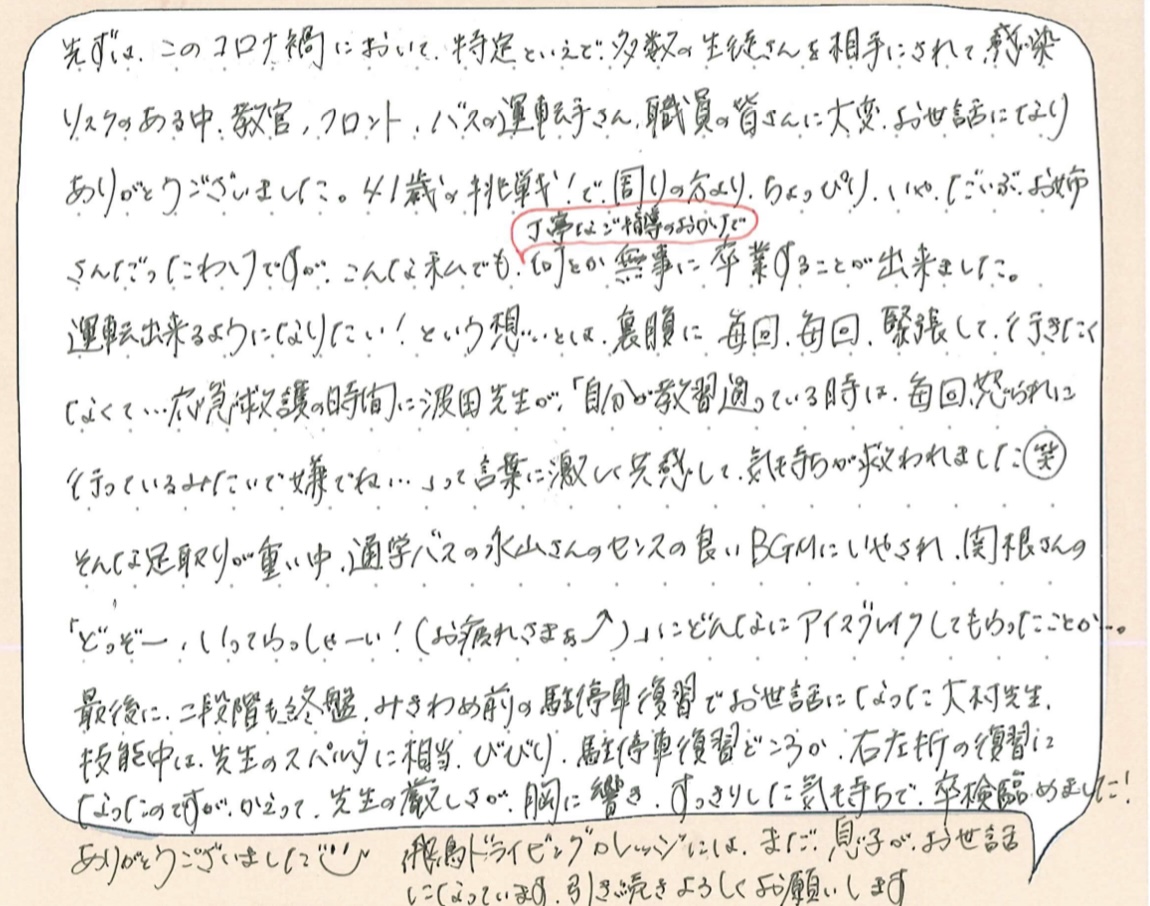 先ずは、このコロナ禍において、特定といえど多数の生徒さんを相手にされて、感染
リスクのある中、教官、フロント、バスの運転手さん、職員の皆さんに大変、お世話になり
ありがとうございました。41歳の挑戦!で、周りの方より、ちょっぴり、いや、だいぶ、お姉
丁寧なご指導のおかげで
さんだったわけですが、こんな私でも、何とか無事に卒業することが出来ました。
運転出来るようになりたい!という想…とは、裏腹に毎回、毎回、緊張して、行きたく
なくて…応急救護の時間に波田先生が、「自分が教習通っている時は、毎回、怒られに
行っているみたいで嫌でね…」って言葉に激しく共感して、気持ちが救われました(笑)
そんな足取りが重い中、通学バスの永山さんのセンスの良いBGMにいやされ、関根さんの
「どうぞー、いってらっしゃーい!(お疲れさまぁ↗)」にどんなにアイスブレイクしてもらったことか…。
最後に、二段階も終盤、みきわめ前の駐停車復習でお世話になった大村先生、
技能中は、先生のスパルタに相当、びびり、駐停車復習どころか、右左折の復習に
なったのですが、かえって、先生の厳しさが、胸に響き、すっきりした気持ちで、卒検臨めました!
ありがとうございました 飛鳥ドライビングカレッジには、まだ、息子が、お世話
になっています。引き続きよろしくお願いします